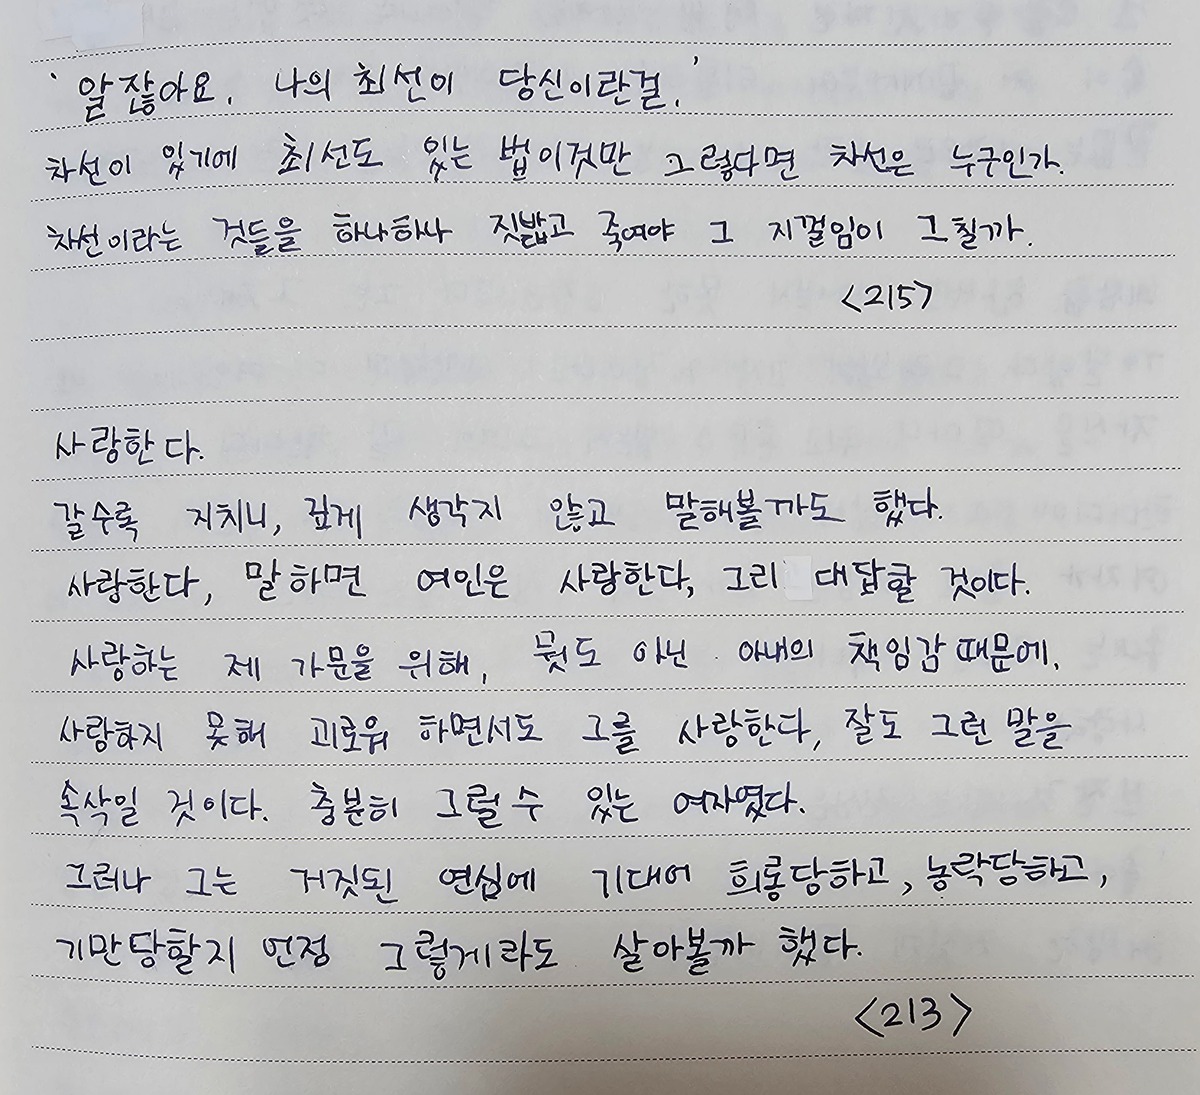 '알잖아요. 나의 최선이 당신이란걸.'
차선이 있기에 최선도 있는 법이것만 그렇다면 차선은 누구인가.
차선이라는 것들을 하나하나 짓밟고 죽여야 그 지껄임이 그칠까.
<215>
사랑한다.
갈수록 지치니, 깊게 생각지 않고 말해볼까도 했다.
사랑한다, 말하면 여인은 사랑한다, 그리 대답할 것이다.
사랑하는 제 가문을 위해, 뭣도 아닌 아내의 책임감 때문에.
사랑하지 못해 괴로워 하면서도 그를 사랑한다, 잘도 그런 말을
속삭일 것이다. 충분히 그럴 수 있는 여자였다.
그러나 그는 거짓된 연심에 기대어 희롱당하고, 농락당하고,
기만당할지 언정 그렇게라도 살아볼까 했다.
<213>